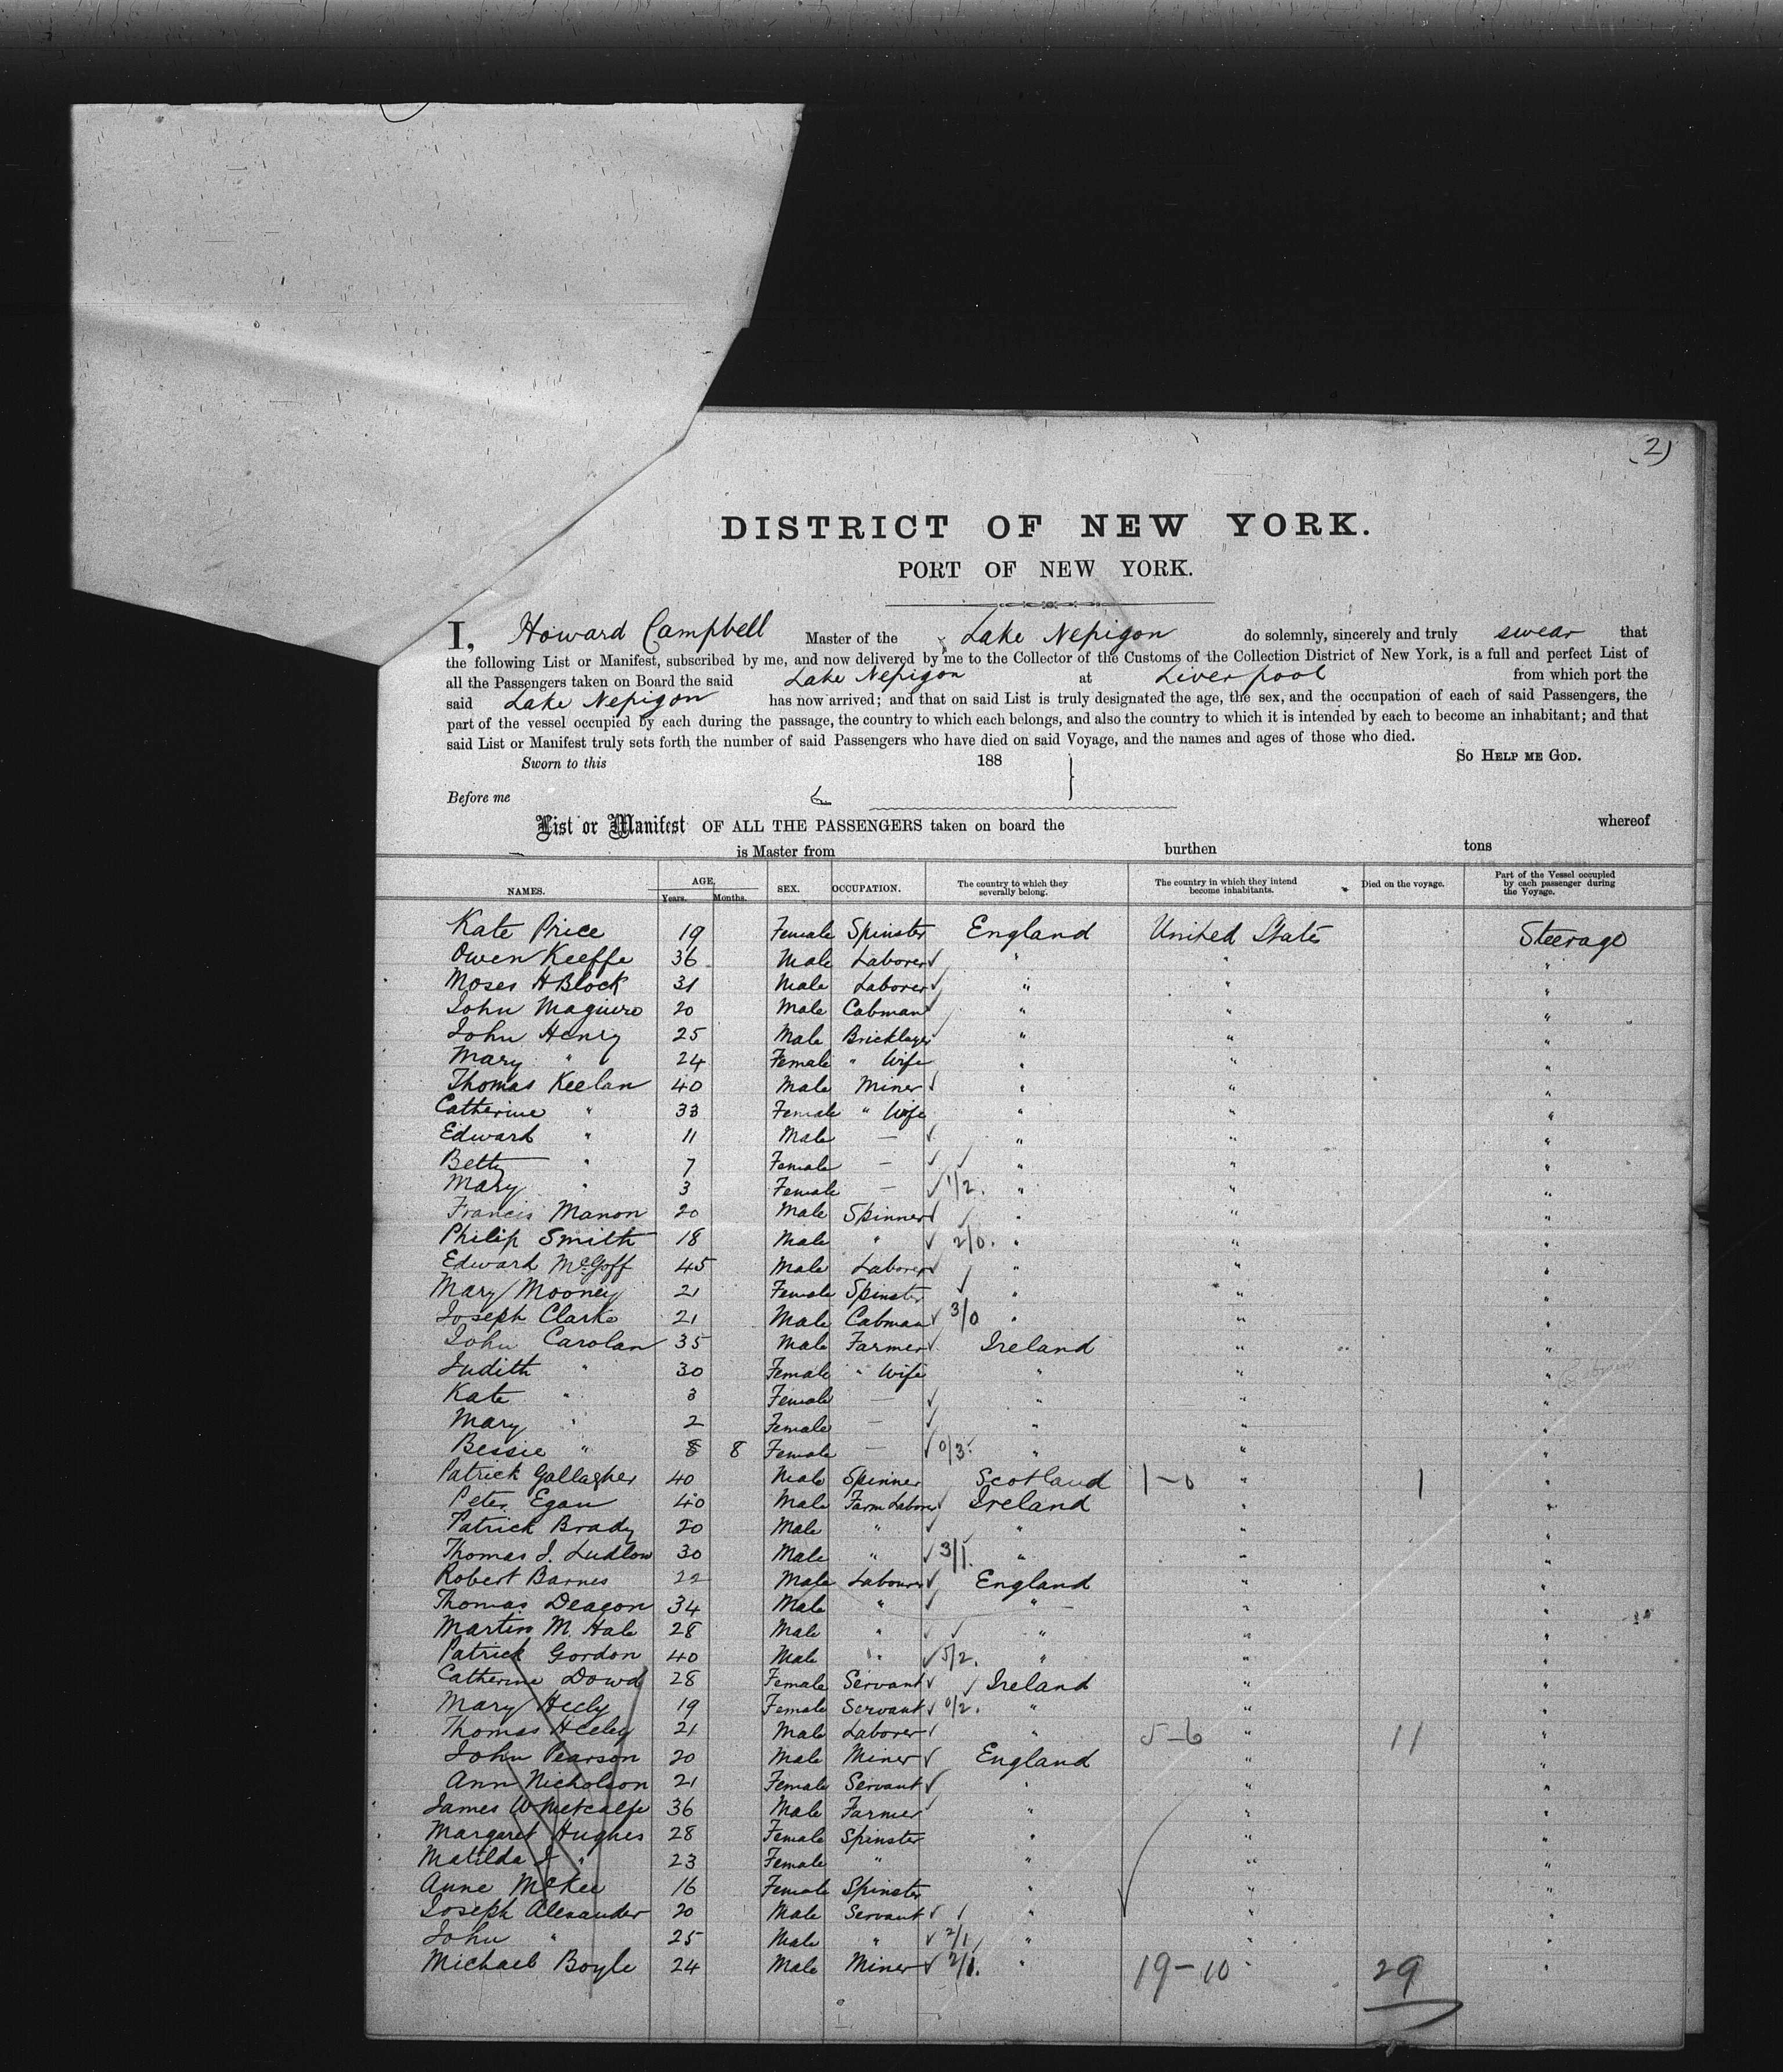 (2)
DISTRICT OF NEW YORK.
PORT OF NEW YORK.
I, Howard Campbell Master of the Lake Nepigon do solemnly, sincerely and truly swear that
the following List or Manifest, subscribed by me, and now delivered by me to the Collector of the Customs of the Collection District of New York, is a full and perfect List of
all the Passengers taken on Board the said Lake Nepigon at Liverpool from which port the
said Lake Nepigon has now arrived; and that on said List is truly designated the age, the sex, and the occupation of each of said Passengers, the
part of the vessel occupied by each during the passage, the country to which each belongs, and also the country to which it is intended by each to become an inhabitant; and that
said List or Manifest truly sets forth the number of said Passengers who have died on said Voyage, and the names and ages of those who died.
Sworn to this 188 So HELP ME GOD.
Before me
List or Manifest OF ALL THE PASSENGERS taken on board the whereof
is Master from burthen tons
NAMES. AGE. Years. Months. SEX. OCCUPATION. The country to which they severally belong. The country in which they intend become inhabitants. Died on the voyage. Part of the Vessel occupied by each passenger during the Voyage.
Kate Price 19 Female Spinster England United States Steerage
Owen Keeffe 36 Male Laborer " " "
Moses H Block 31 Male Laborer " " "
John Maguire 20 Male Cabman " " "
John Henry 25 Male Bricklayer " " "
Mary " 24 Female " Wife " " "
Thomas Keelan 40 Male Miner " " "
Catherine " 33 Female " Wife " " "
Edward " 11 Male — " " "
Betty " 7 Female — " " "
Mary " 3 Female — 1/2. " " "
Francis Manon 20 Male Spinner " " "
Philip Smith 18 Male " 2/0. " " "
Edward McGoff 45 Male Laborer " " "
Mary Mooney 21 Female Spinster " " "
Joseph Clarke 21 Male Cabman 3/0 " " "
John Carolan 35 Male Farmer Ireland " "
Judith " 30 Female " Wife " " "
Kate " 3 Female — " " "
Mary " 2 Female — " " "
Bessie " 8 8 Female — 0/3. " " "
Patrick Gallagher 40 Male Spinner Scotland 1-0 " 1 "
Peter Egan 40 Male Farm Laborer Ireland " "
Patrick Brady 20 Male " " " "
Thomas J. Ludlow 30 Male " 3/1. " " "
Robert Barnes 22 Male Labourer England " "
Thomas Deacon 34 Male " " " "
Martin M. Hale 28 Male " " " "
Patrick Gordon 40 Male " 5/2. " " "
Catherine Dowd 28 Female Servant Ireland " "
Mary Heely 19 Female Servant 0/2. " " "
Thomas Heeley 21 Male Laborer " 5-6 " 11 "
John Pearson 20 Male Miner England " "
Ann Nicholson 21 Female Servant " " "
James W Metcalfe 36 Male Farmer " " "
Margaret Hughes 28 Female Spinster " " "
Matilda J " 23 Female " " " "
Anne McKee 16 Female Spinster " " "
Joseph Alexander 20 Male Servant " " "
John " 25 Male " 2/1 " " "
Michael Boyle 24 Male Miner 2/1. " 19-10 " 29 "